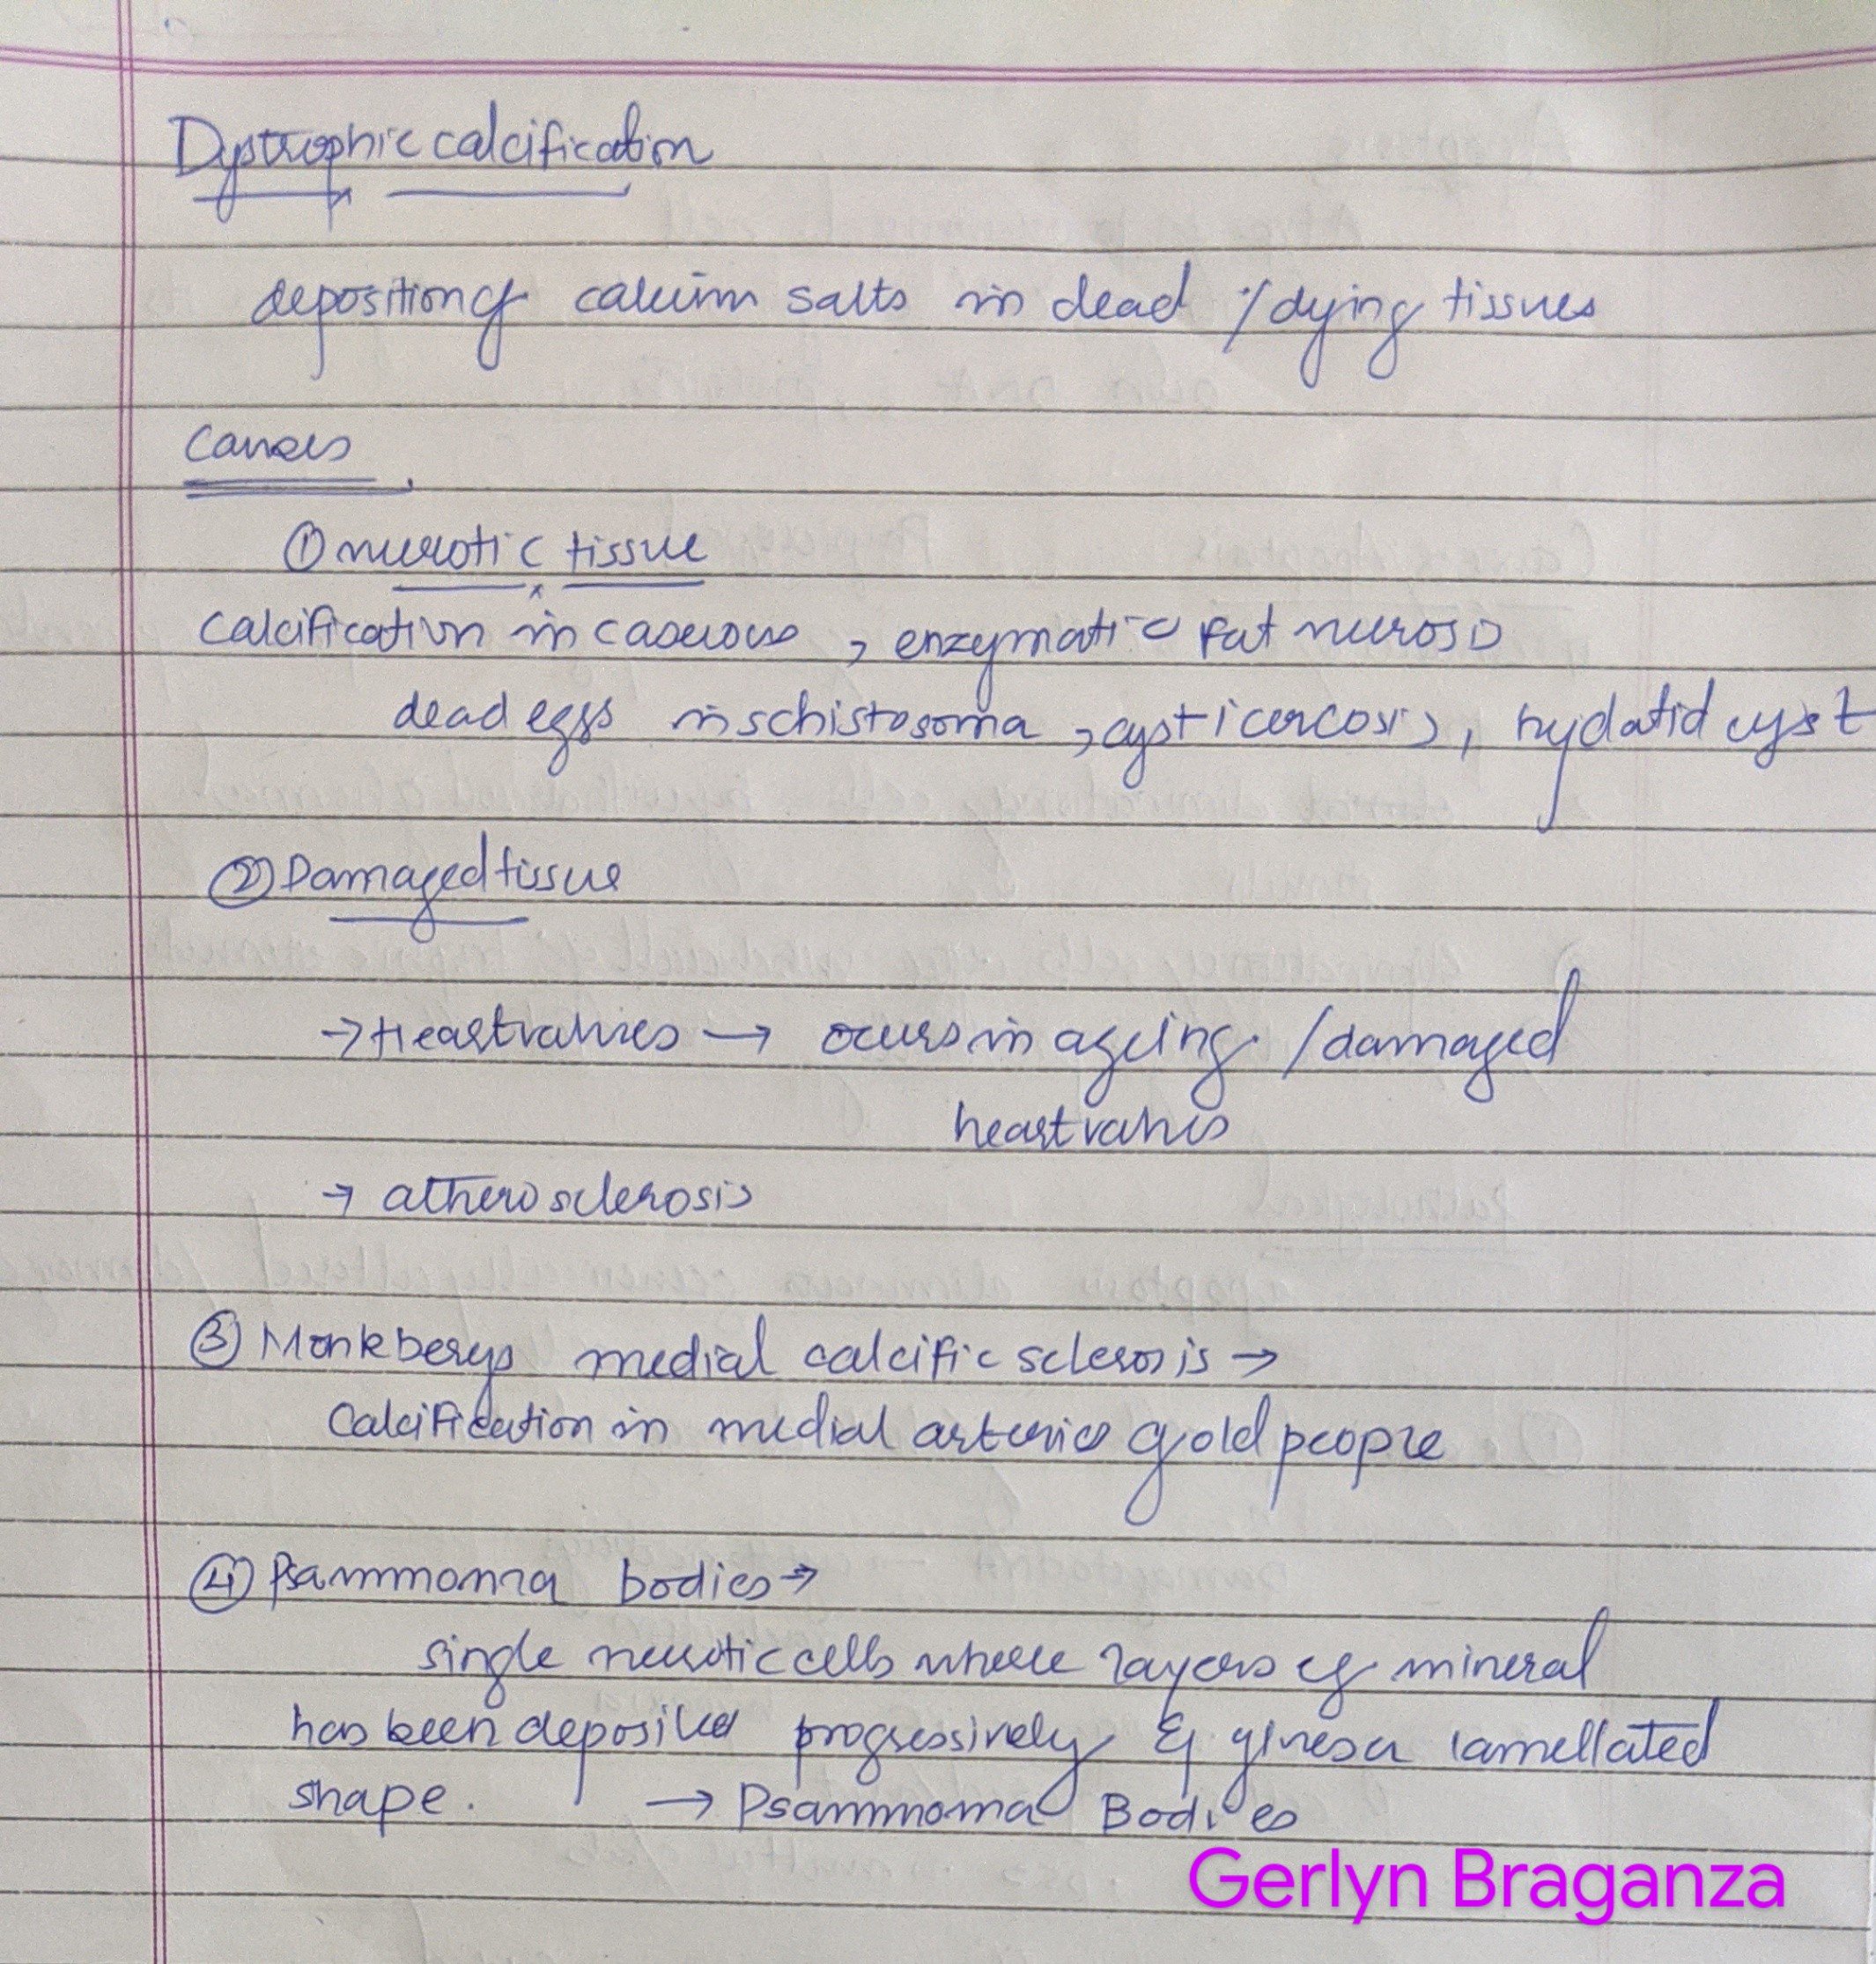 Dystrophic calcification
deposition of calcium salts in dead / dying tissues
Causes
① necrotic tissue
Calcification in caseous , enzymatic fat necrosis
dead eggs in schistosoma , cysticercosis, hydatid cyst
② Damaged tissue
→ Heart valves → occurs in ageing / damaged
heart valves
→ atherosclerosis
③ Monkbergs medial calcific sclerosis →
Calcification in medial arteries of old people
④ Psammomma bodies →
single necrotic cells where layers of mineral
has been deposited progressively & gives a lamellated
shape. → Psammoma Bodies
Gerlyn Braganza